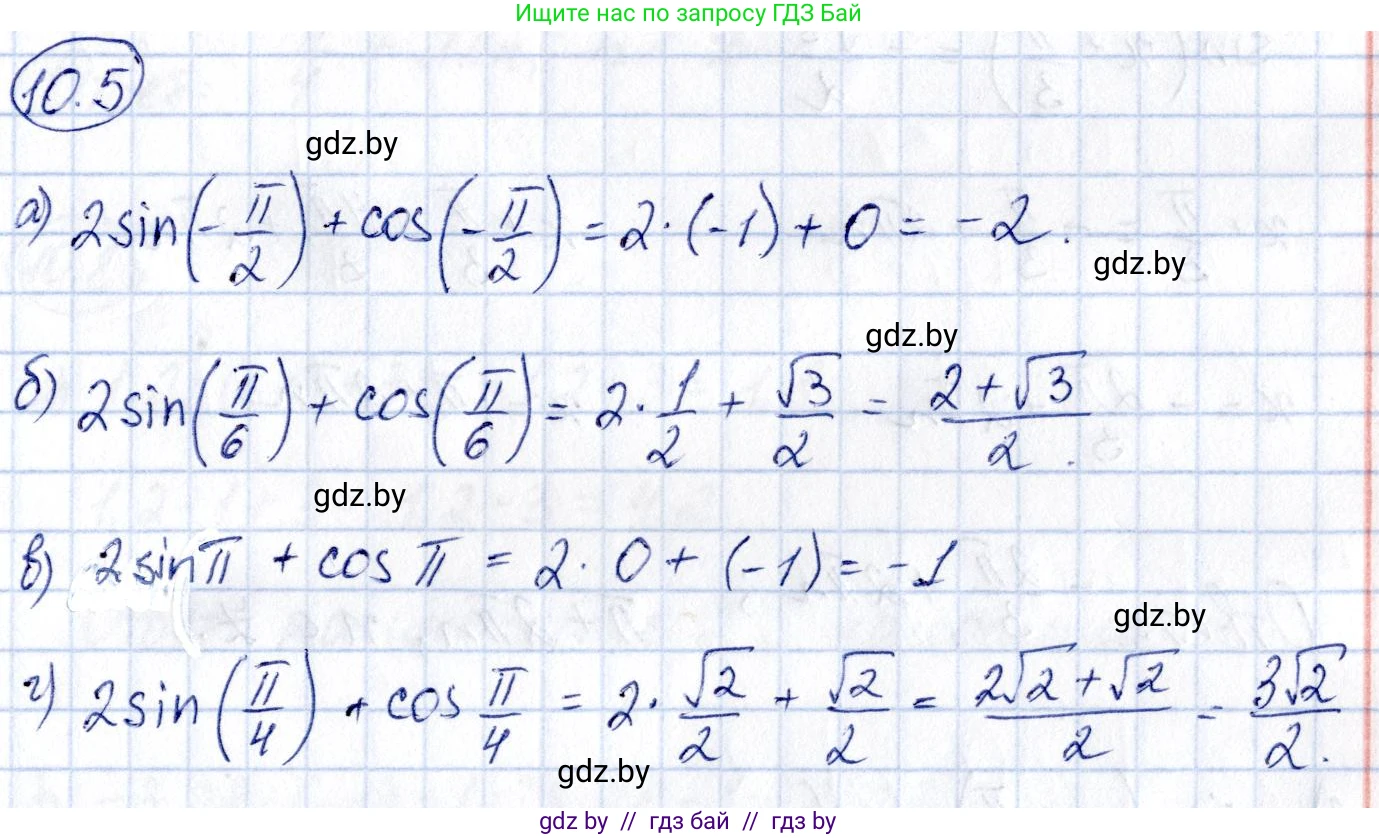 Ищите нас по запросу ГДЗ Бай
10.5
gdz.by
а) 2sin(-π/2) + cos(-π/2) = 2·(-1) + 0 = -2.
gdz.by
gdz.by
б) 2sin(π/6) + cos(π/6) = 2·1/2 + √3/2 = (2+√3)/2.
gdz.by
в) 2sinπ + cosπ = 2·0 + (-1) = -1
gdz.by
г) 2sin(π/4) + cos π/4 = 2·√2/2 + √2/2 = (2√2+√2)/2 = 3√2/2.
gdz.by
gdz by // гдз бай // гдз by